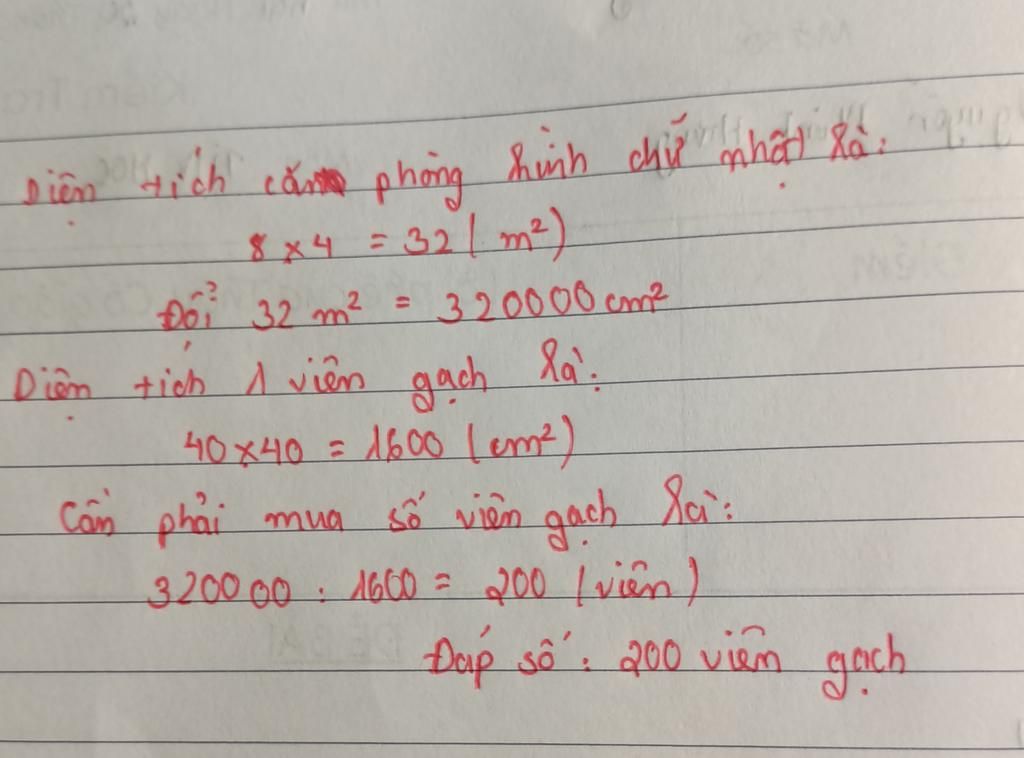 Diện tích căn phòng hình chữ nhật là:
8 x 4 = 32 ( m²)
Đổi 32 m² = 320000 cm²
Diện tích 1 viên gạch là:
40 x 40 = 1600 ( cm²)
Cần phải mua số viên gạch là:
320000 : 1600 = 200 ( viên )
Đáp số : 200 viên gạch